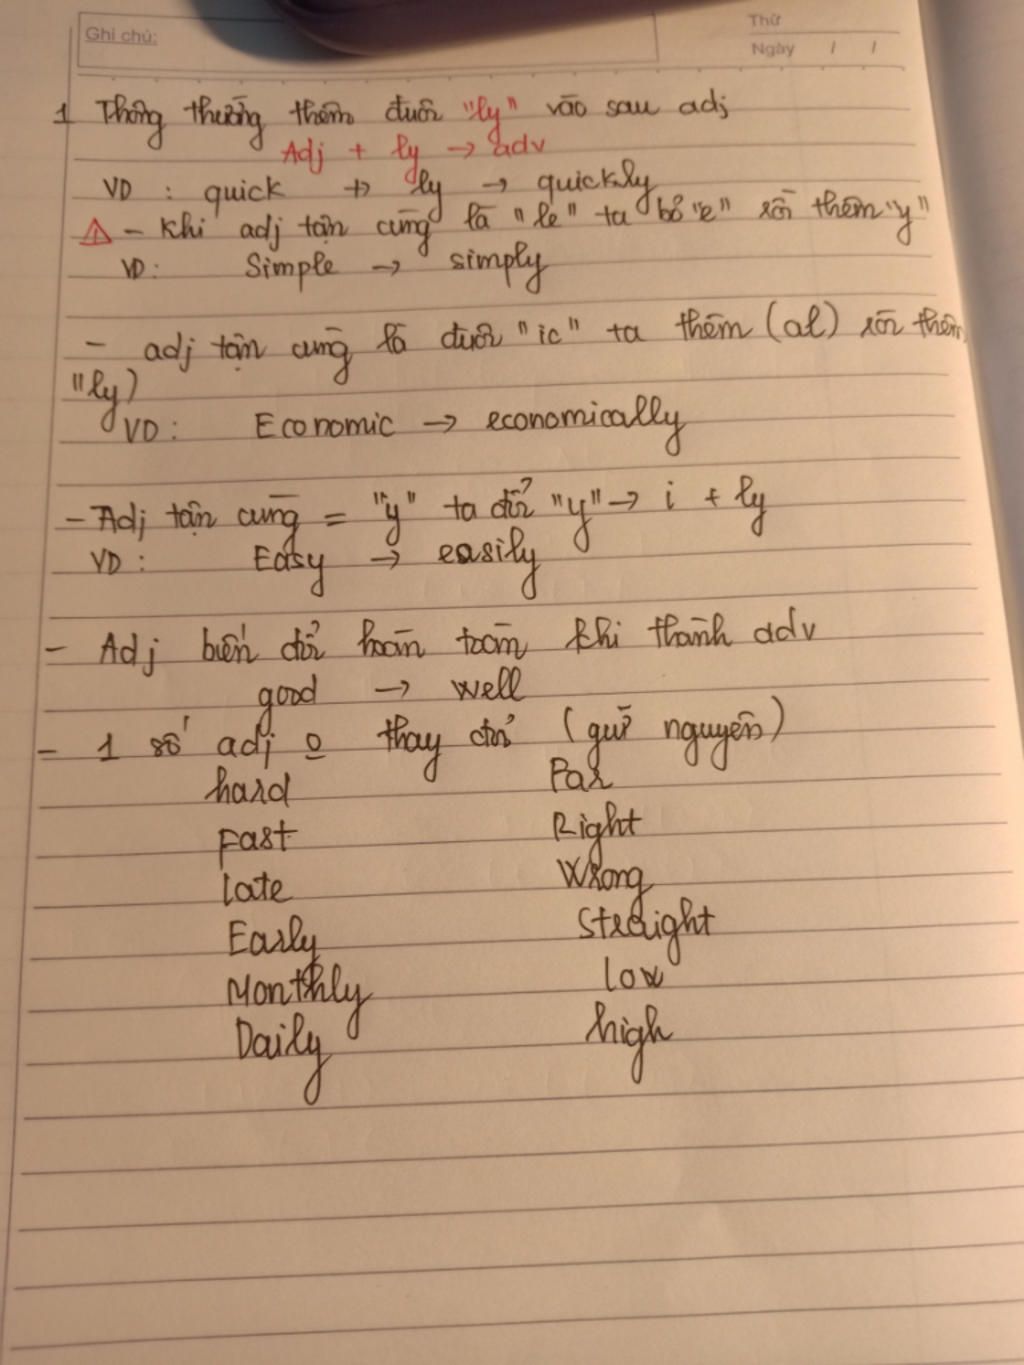 Ghi chú:
Thứ
Ngày / /
1 Thông thường thêm đuôi "ly" vào sau adj
Adj + ly → adv
VD : quick + ly → quickly
⚠ - Khi adj tận cùng là "le" ta bỏ "e" rồi thêm "y"
VD: Simple → simply
- adj tận cùng là đuôi "ic" ta thêm (al) rồi thêm
"ly)
VD: Economic → economically
- Adj tận cùng = "y" ta đổi "y" → i + ly
VD: Easy → easily
- Adj biến đổi hoàn toàn khi thành adv
good → well
- 1 số adj o thay đổi (giữ nguyên)
hard Far
Fast Right
late Wrong
Early Straight
Monthly low
Daily high